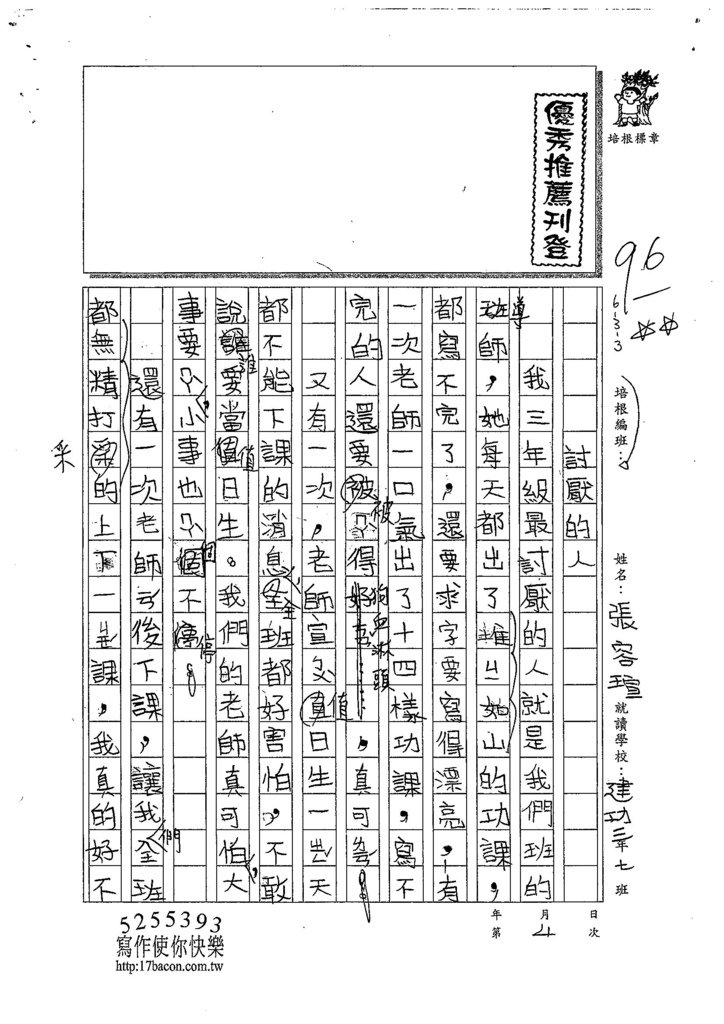 優秀推薦刊登
培根標章
96
6-3-3
培根編班：
姓名：張容瑄
就讀學校：建功三年七班
日 月 年
次 4 第
討厭的人
我三年級最討厭的人就是我們班的
班導師，她每天都出了堆ㄓ如山的功課，
都寫不完了，還要求字要寫得漂亮，有
一次老師一口氣出了十四樣功課，寫不
完的人還要被得狗血淋頭，真可！
又有一次，老師宣值日生一天
都不能下課的消息，全班都好害怕，不敢
說誰要當值日生。我們的老師真可怕，大
事要，小事也個不停！
還有一次老師後下課，讓我們全班
都無精打采的上下一課，我真的好不
5255393
寫作使你快樂
http:17bacon.com.tw